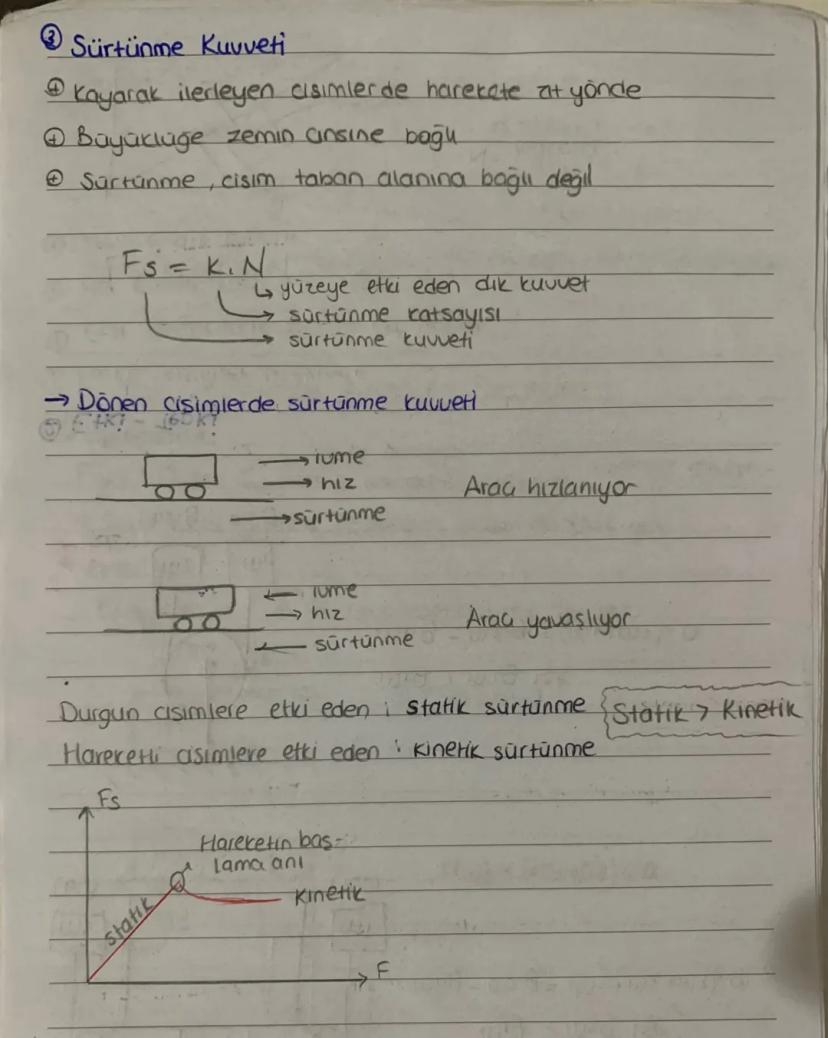 ③ Sürtünme Kuvveti
⊕ Kayarak ilerleyen cisimlerde harekete zıt yönde
⊕ Büyüklüğe zemin cinsine bağlı
⊕ Sürtünme, cisim taban alanına bağlı değil
Fs = k.N
↳ yüzeye etki eden dik kuvvet
→ sürtünme katsayısı
→ sürtünme kuvveti
→ Dönen cisimlerde sürtünme kuvveti
→ ivme
→ hız
Aracı hızlanıyor
→ sürtünme
← ivme
→ hız
Aracı yavaşlıyor
← sürtünme
Durgun cisimlere etki eden : statik sürtünme {Statik > Kinetik
Hareketli cisimlere etki eden : kinetik sürtünme
Fs
Hareketin baş-
lama anı
Kinetik
statik
F